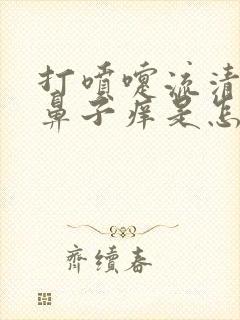 打喷嚏流清
鼻子痒是怎
齊續春